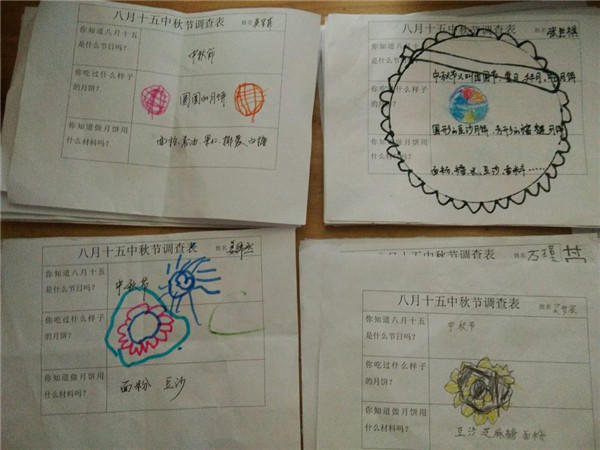 八月十五中秋节调查表
姓名
你知道八月十五
是什么节日吗?
中秋节
你吃过什么样子
的月饼?
圆圆的月饼
你知道做月饼用
什么材料吗?
面粉、
八月十五中秋节调查表
姓名
你知道八月十五
是什么节日吗?
中秋节又叫团圆节、
你吃过什么样子
的月饼?
圆形的豆沙月饼、
月饼
你知道做月饼用
什么材料吗?
面粉、糖、水、豆沙、面料……
八月十五中秋节调查表
姓名
你知道八月十五
是什么节日吗?
中秋节
你吃过什么样子
的月饼?
你知道做月饼用
什么材料吗?
面粉 豆沙
八月十五中秋节调查表
姓名
八月十五中秋节调查表
姓名
你知道八月十五
是什么节日吗?
中秋节
你吃过什么样子
的月饼?
你知道做月饼用
什么材料吗?
豆沙 芝麻 糖 面粉